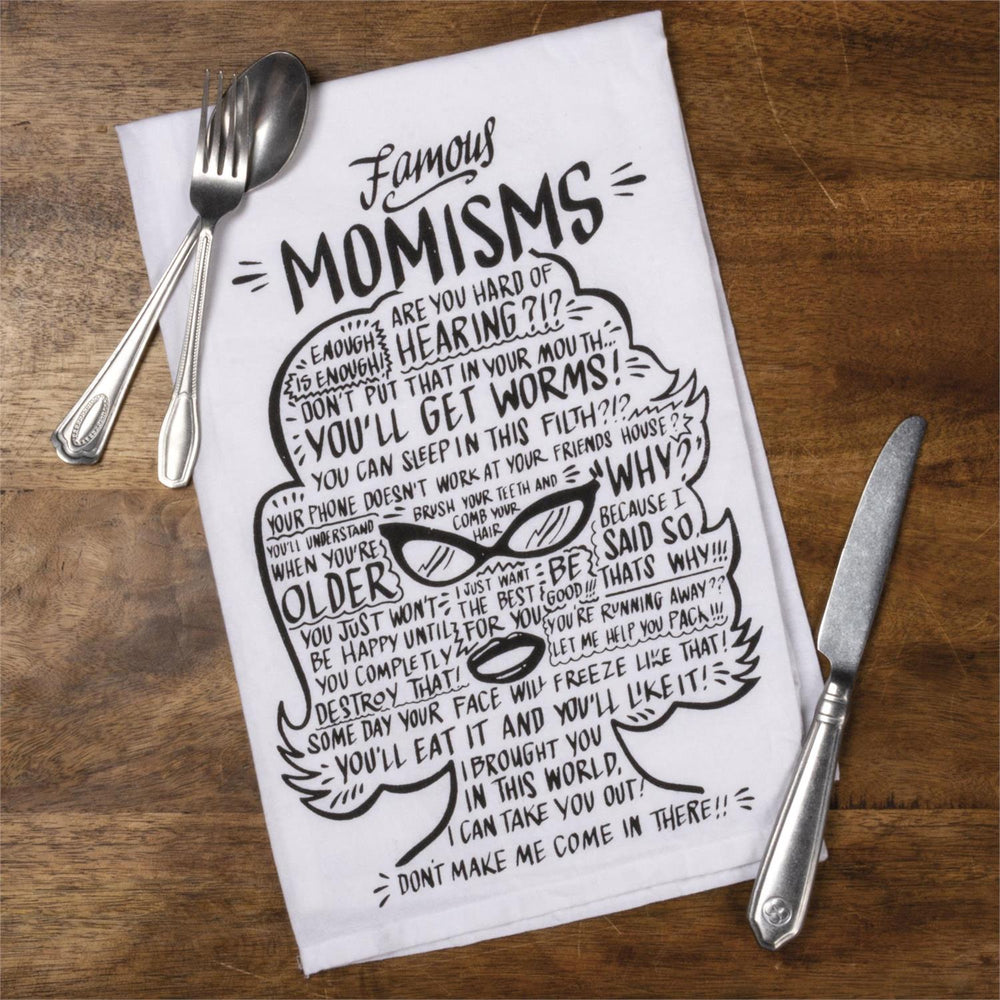 Famous
MOMISMS
ENOUGH
IS ENOUGH!
ARE YOU HARD OF
HEARING?!?
DON'T PUT THAT IN YOUR MOUTH...
YOU'LL GET WORMS!
YOU CAN SLEEP IN THIS FILTH?!?
YOUR PHONE DOESN'T WORK AT YOUR FRIENDS HOUSE?
BRUSH YOUR TEETH AND
COMB YOUR
HAIR
WHY?
BECAUSE I
SAID SO.
THATS WHY!!!
YOU'LL UNDERSTAND
WHEN YOU'RE
OLDER
I JUST WANT
THE BEST
FOR YOU
BE
GOOD!!!
YOU JUST WON'T
BE HAPPY UNTIL
YOU COMPLETLY
DESTROY THAT!
YOU'RE RUNNING AWAY??
LET ME HELP YOU PACK!!!
SOME DAY YOUR FACE WILL FREEZE LIKE THAT!
YOU'LL EAT IT AND YOU'LL LIKE IT!
I BROUGHT YOU
IN THIS WORLD,
I CAN TAKE YOU OUT!
DON'T MAKE ME COME IN THERE!!